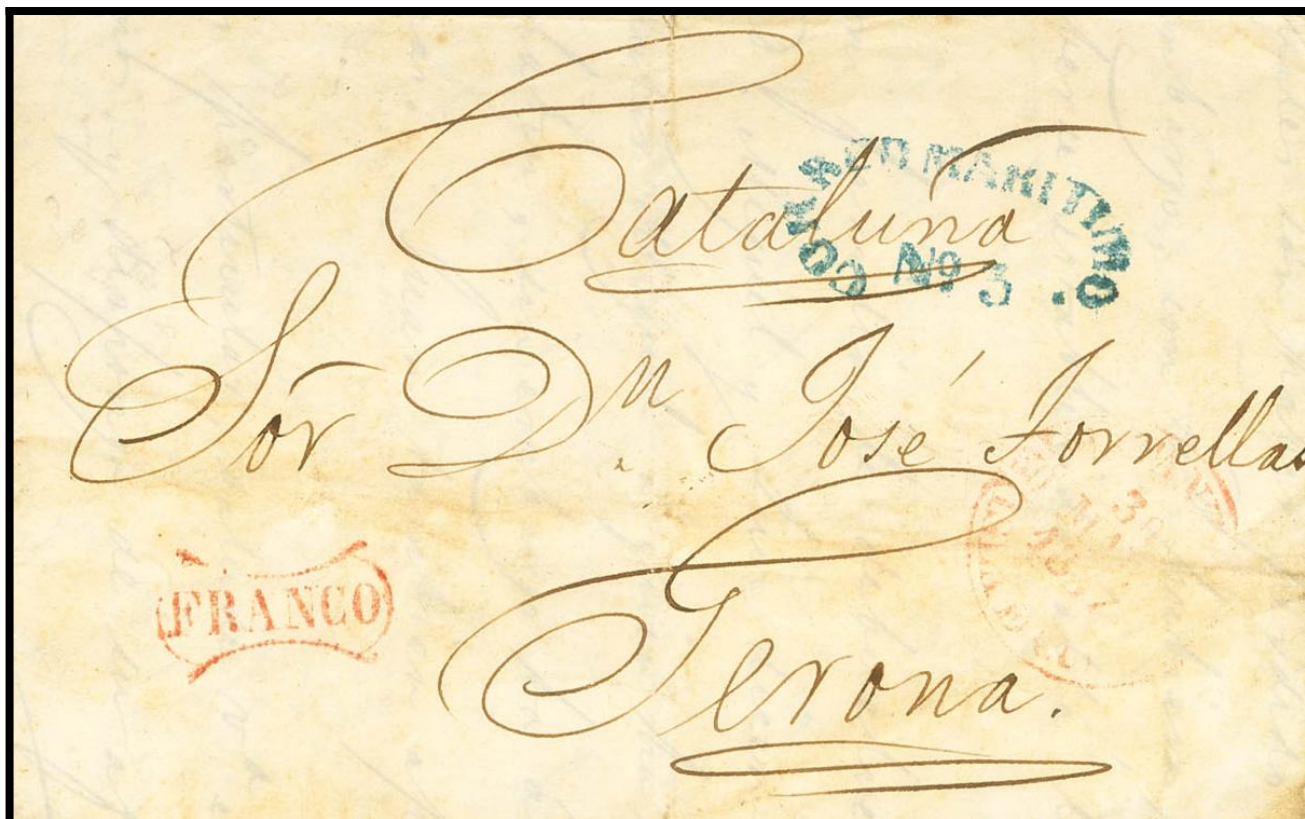 Cataluña
CORREO MARITIMO
Nº 3.
Sor Dn. José Torrellas
FRANCO
30
Gerona.